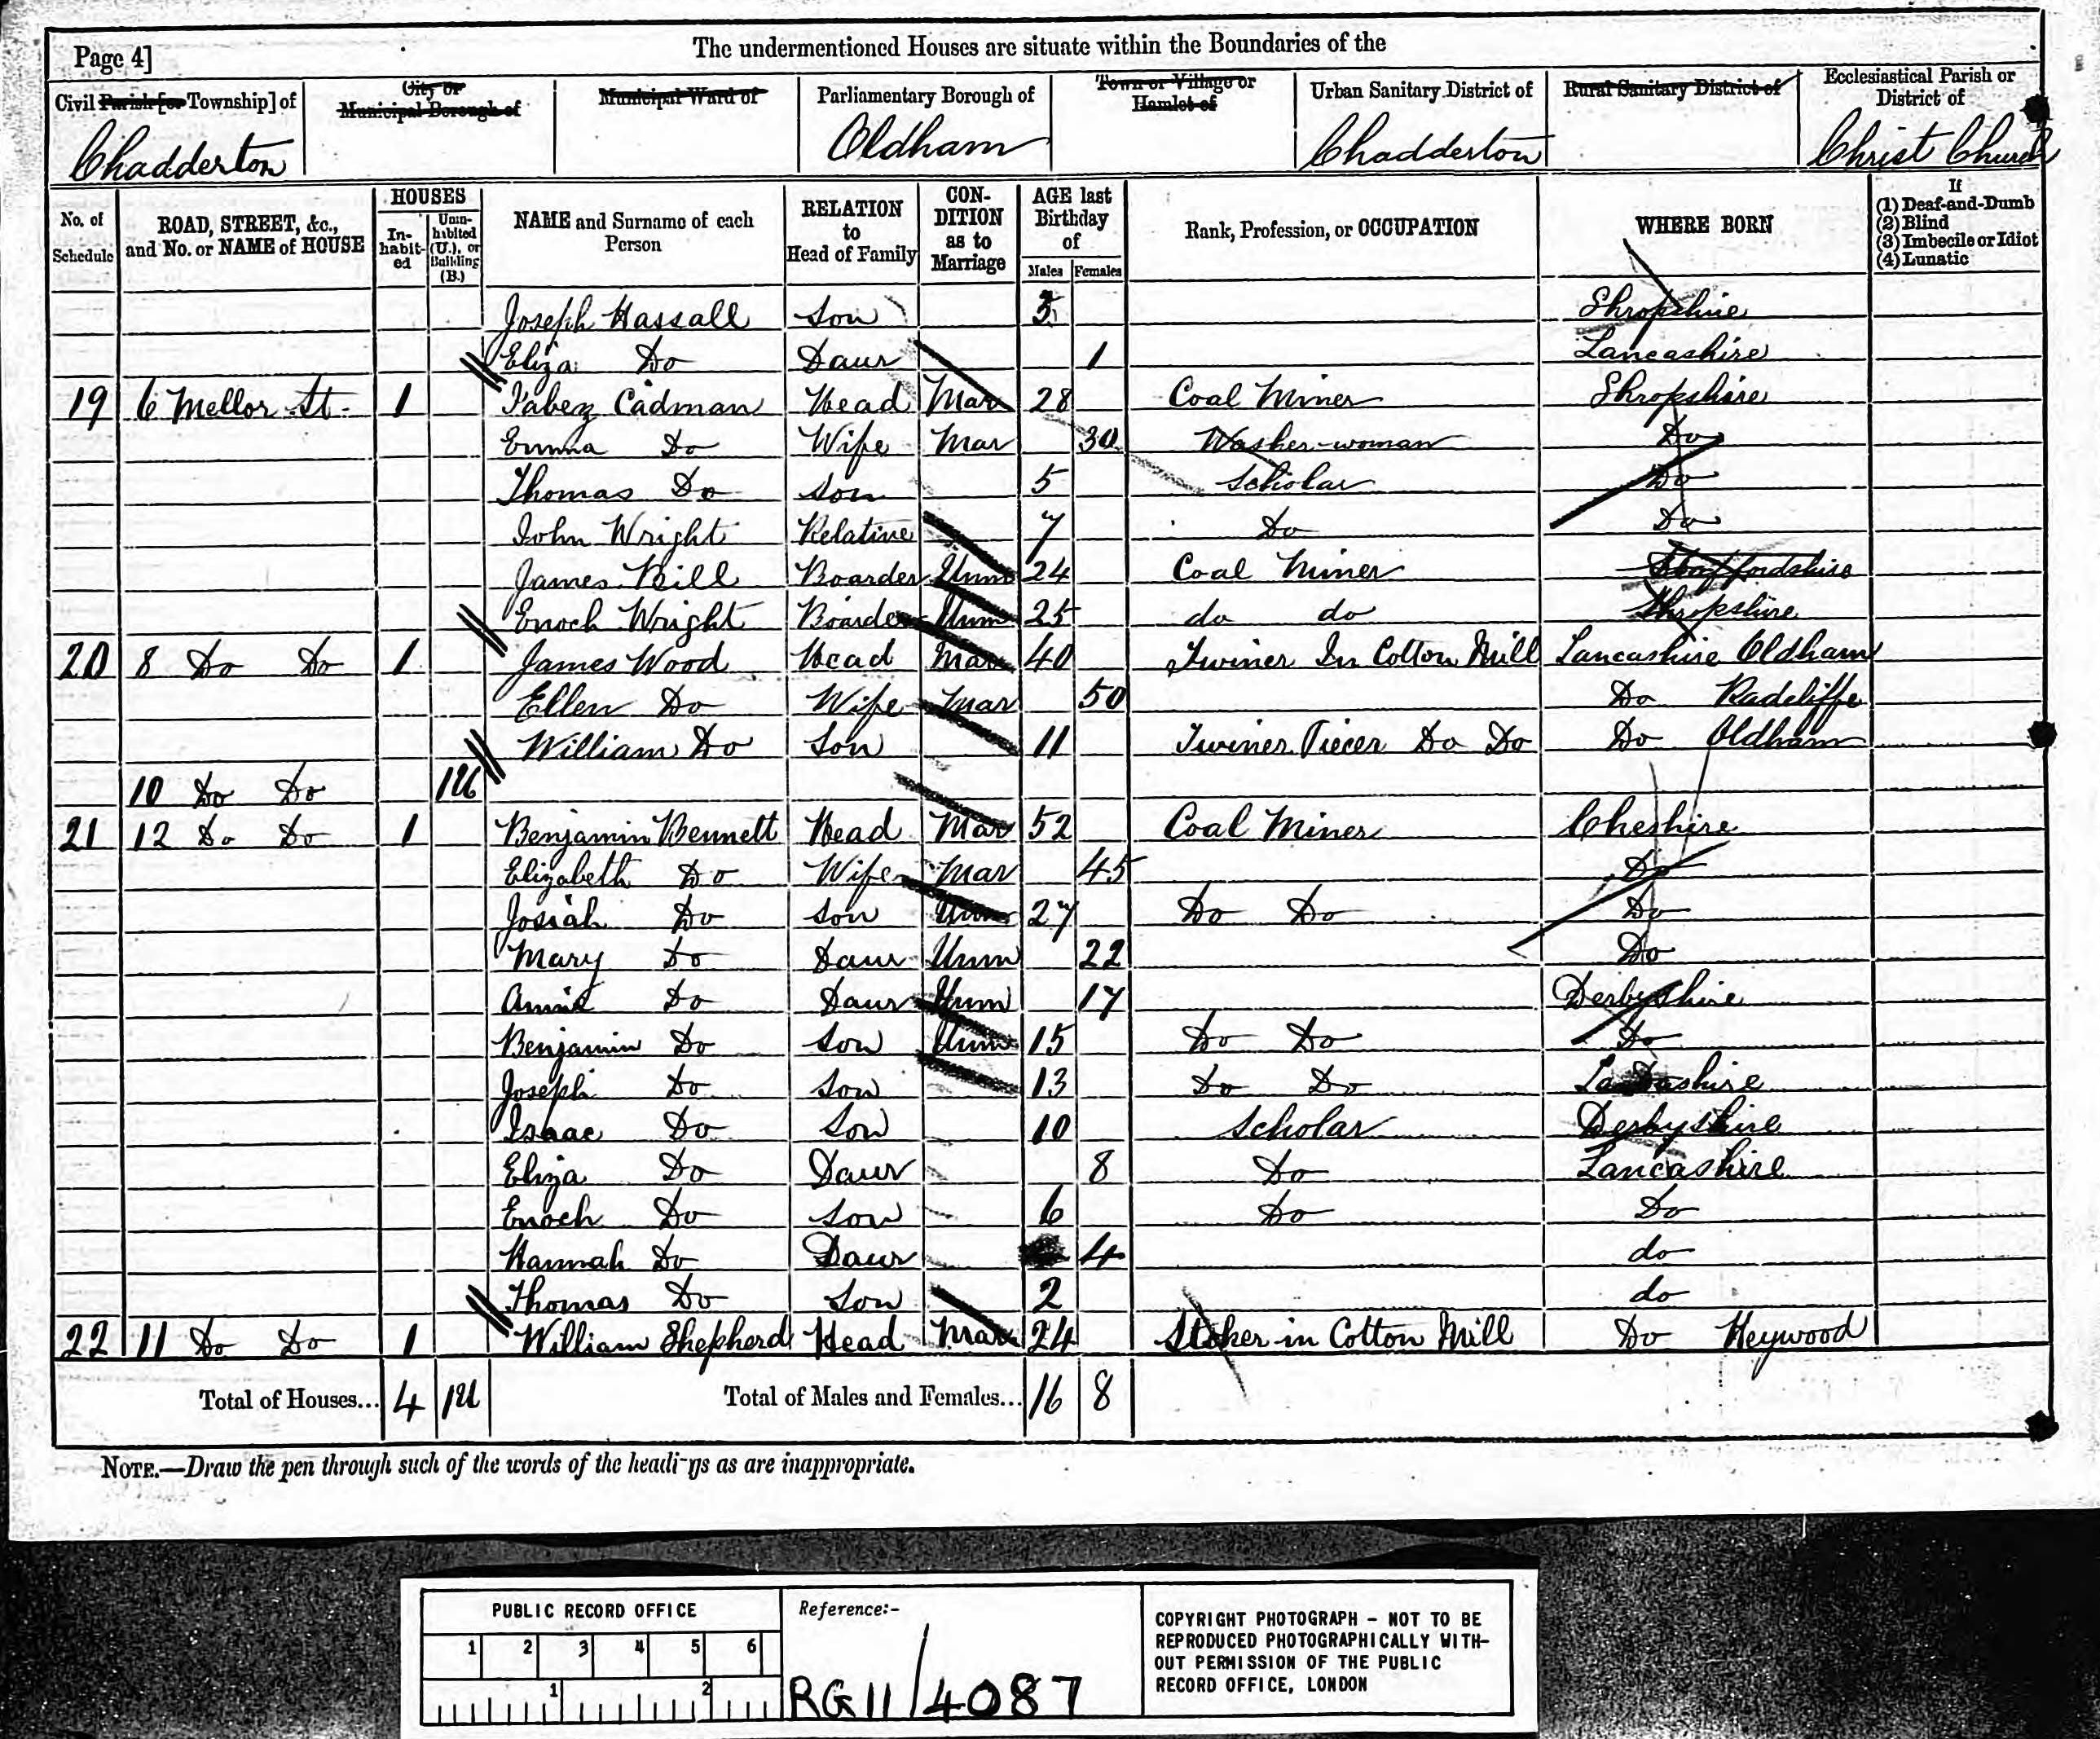 Page 4]
The undermentioned Houses are situate within the Boundaries of the
Civil Parish [or Township] of
City or Municipal Borough of
Municipal Ward of
Parliamentary Borough of
Town or Village or Hamlet of
Urban Sanitary District of
Rural Sanitary District of
Ecclesiastical Parish or District of
Chadderton Oldham Chadderton Christ Church
No. of Schedule
ROAD, STREET, &c., and No. or NAME of HOUSE
HOUSES
In-habit-ed
Unin-habited (U.), or Building (B.)
NAME and Surname of each Person
RELATION to Head of Family
CON-DITION as to Marriage
AGE last Birthday of
Males Females
Rank, Profession, or OCCUPATION
WHERE BORN
If
(1) Deaf-and-Dumb
(2) Blind
(3) Imbecile or Idiot
(4) Lunatic
Joseph Hassall Son 3 Shropshire
Eliza Do Daur 1 Lancashire
19 6 Mellor St. 1 Jabez Cadman Head Mar 28 Coal Miner Shropshire
Emma Do Wife Mar 30 Washer-woman Do
Thomas Do Son 5 Scholar Do
John Wright Relative 7 Do Do
James Bill Boarder Unm 24 Coal Miner Staffordshire
Enoch Wright Boarder Unm 25 do do Shropshire
20 8 Do Do 1 James Wood Head Mar 40 Twiner In Cotton Mill Lancashire Oldham
Ellen Do Wife Mar 50 Do Radcliffe
William Do Son 11 Twiner Piecer Do Do Do Oldham
10 Do Do 1U
21 12 Do Do 1 Benjamin Bennett Head Mar 52 Coal Miner Cheshire
Elizabeth Do Wife Mar 45 Do
Josiah Do Son Unm 27 Do Do Do
Mary Do Daur Unm 22 Do
Annie Do Daur Unm 17 Derbyshire
Benjamin Do Son Unm 15 Do Do Do
Joseph Do Son 13 Do Do Lancashire
Isaac Do Son 10 Scholar Derbyshire
Eliza Do Daur 8 Do Lancashire
Enoch Do Son 6 Do Do
Hannah Do Daur 4 do
Thomas Do Son 2 do
22 11 Do Do 1 William Shepherd Head Mar 24 Stoker in Cotton Mill Do Heywood
Total of Houses... 4 1U Total of Males and Females... 16 8
NOTE.—Draw the pen through such of the words of the headings as are inappropriate.
PUBLIC RECORD OFFICE
1 2 3 4 5 6
1 2
Reference:-
RG 11/4087
COPYRIGHT PHOTOGRAPH - NOT TO BE
REPRODUCED PHOTOGRAPHICALLY WITH-
OUT PERMISSION OF THE PUBLIC
RECORD OFFICE, LONDON